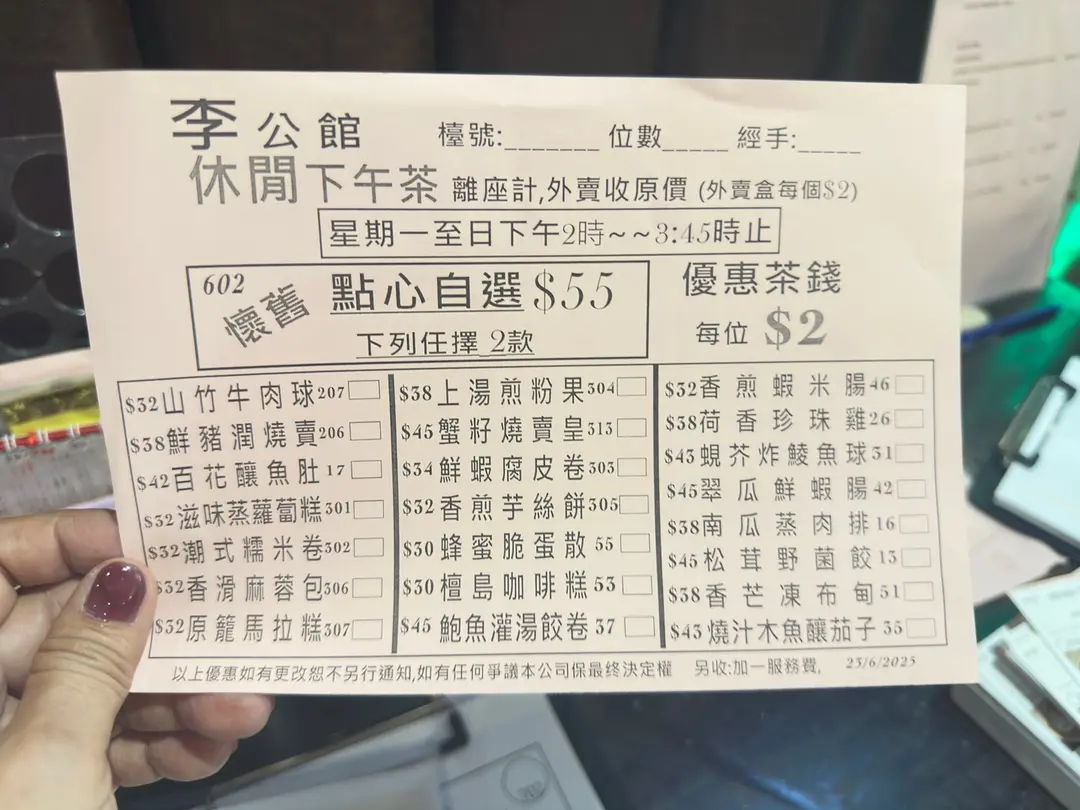 李公館 檯號:_______ 位數_____ 經手:_____
休閒下午茶 離座計,外賣收原價 (外賣盒每個$2)
星期一至日下午2時~~3:45時止
602 懷舊 點心自選 $55
下列任擇 2款
優惠茶錢
每位 $2
$32山竹牛肉球207
$38鮮豬潤燒賣206
$42百花釀魚肚 17
$32滋味蒸蘿蔔糕301
$32潮式糯米卷302
$32香滑麻蓉包306
$32原籠馬拉糕307
$38上湯煎粉果304
$45蟹籽燒賣皇313
$34鮮蝦腐皮卷303
$32香煎芋絲餅305
$30蜂蜜脆蛋散 55
$30檀島咖啡糕 53
$45鮑魚灌湯餃卷 37
$32香煎蝦米腸46
$38荷香珍珠雞26
$43蜆芥炸鯪魚球31
$45翠瓜鮮蝦腸42
$38南瓜蒸肉排16
$45松茸野菌餃13
$38香芒凍布甸51
$43燒汁木魚釀茄子 35
以上優惠如有更改恕不另行通知,如有任何爭議本公司保最終決定權 另收:加一服務費, 23/6/2025